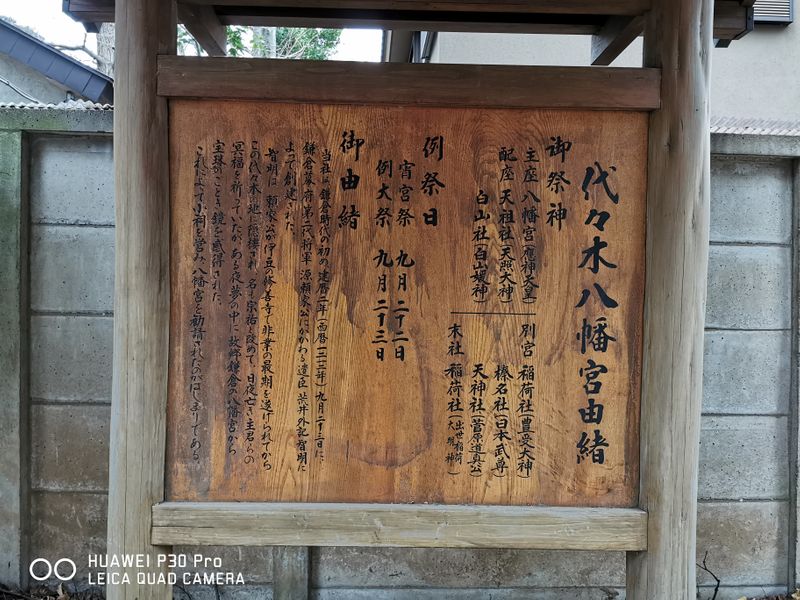 代々木八幡宮由緒
御祭神
主座 八幡宮(應神天皇)
配座 天祖社(天照大神)
白山社(白山媛神)
別宮 稲荷社(豊受大神)
榛名社(日本武尊)
天神社(菅原道真公)
末社 稲荷社(出世稲荷大明神)
例祭日
宵宮祭 九月二十二日
例大祭 九月二十三日
御由緒
当社は鎌倉時代の初め、建暦二年(西暦一二一二年)九月二十三日に、
鎌倉幕府第二代将軍 源頼家公にかかわる遺臣 荒井外記智明に
よって創建された。
智明は、頼家公が伊豆の修善寺で非業の最期を遂げられてから
この代々木の地に隠棲され、名も宗祐と改めて、日夜亡き主君らの
冥福を祈っていたが、ある夜夢の中に故郷鎌倉の八幡宮から
宝珠のごとき鏡を感得された。
これによって小祠を営み、八幡宮を勧請されたのがはじまりである。
HUAWEI P30 Pro
LEICA QUAD CAMERA